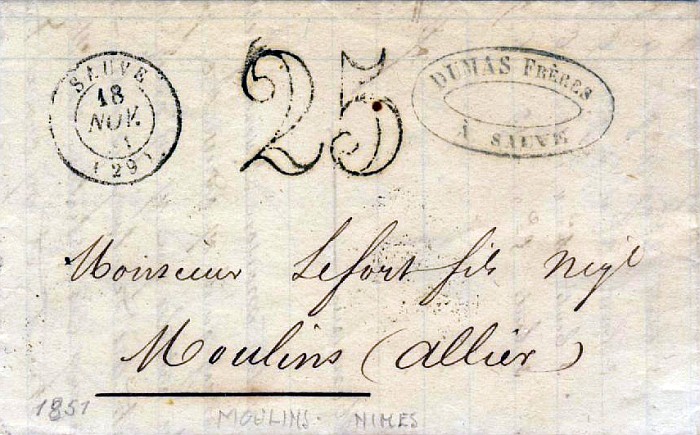 SAUVE
18
NOV.
51
(29)
25
DUMAS FRÈRES
À SAUVE
Monsieur Lefort fils Negt
Moulins (Allier)
1851
MOULINS. NIMES